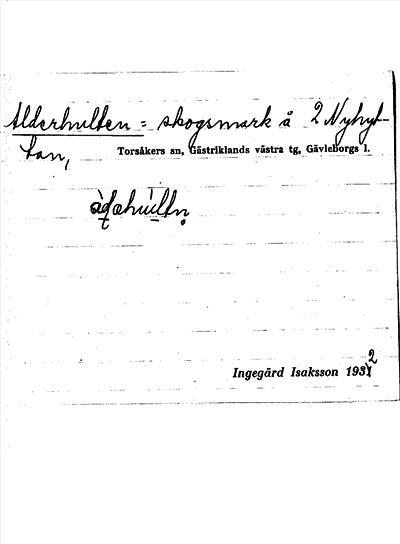 Alderhulten = skogsmark å 2 Nyhyt-
tan,
Torsåkers sn, Gästriklands västra tg, Gävleborgs l.
Ingegärd Isaksson 1932